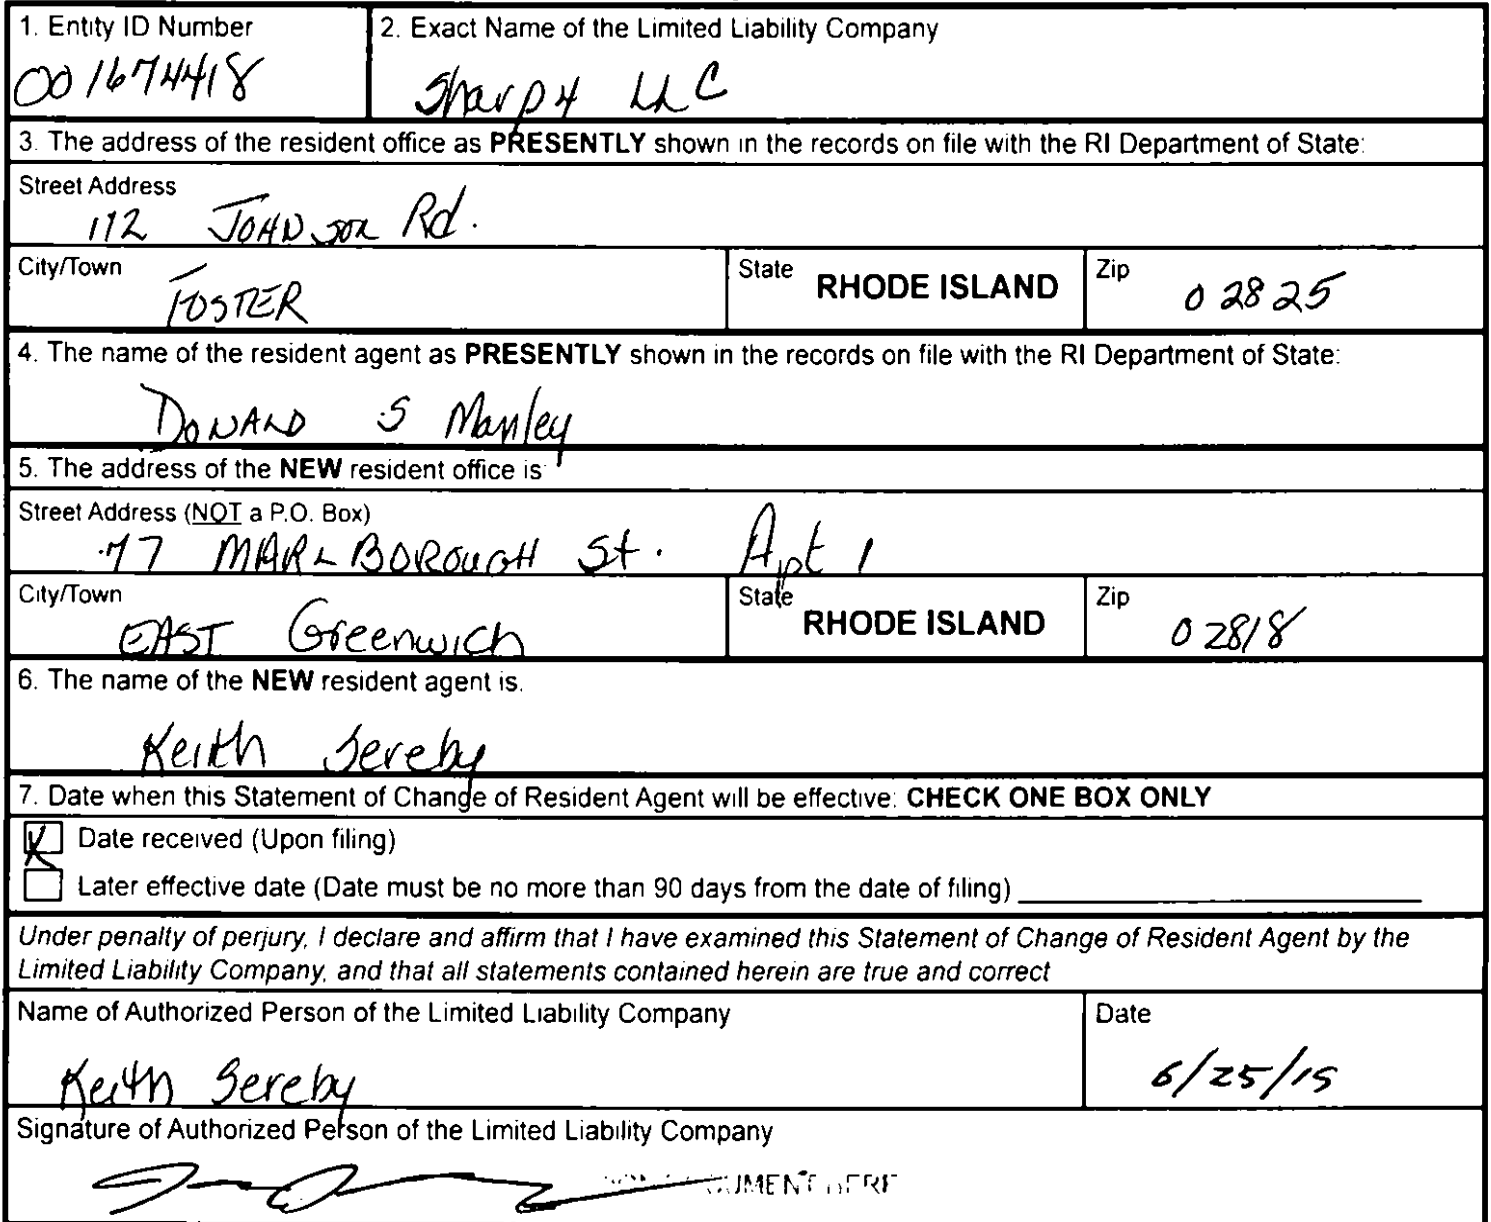 1. Entity ID Number
2. Exact Name of the Limited Liability Company
001674418
Sharp4 LLC
3. The address of the resident office as PRESENTLY shown in the records on file with the RI Department of State:
Street Address
112 JOHNSON Rd.
City/Town
FOSTER
State RHODE ISLAND
Zip
02825
4. The name of the resident agent as PRESENTLY shown in the records on file with the RI Department of State:
DONALD S Manley
5. The address of the NEW resident office is
Street Address (NOT a P.O. Box)
77 MARLBOROUGH St. Apt 1
City/Town
EAST Greenwich
State RHODE ISLAND
Zip
02818
6. The name of the NEW resident agent is.
Keith Sereby
7. Date when this Statement of Change of Resident Agent will be effective: CHECK ONE BOX ONLY
Date received (Upon filing)
Later effective date (Date must be no more than 90 days from the date of filing)
Under penalty of perjury, I declare and affirm that I have examined this Statement of Change of Resident Agent by the
Limited Liability Company, and that all statements contained herein are true and correct
Name of Authorized Person of the Limited Liability Company
Date
Keith Sereby
6/25/15
Signature of Authorized Person of the Limited Liability Company